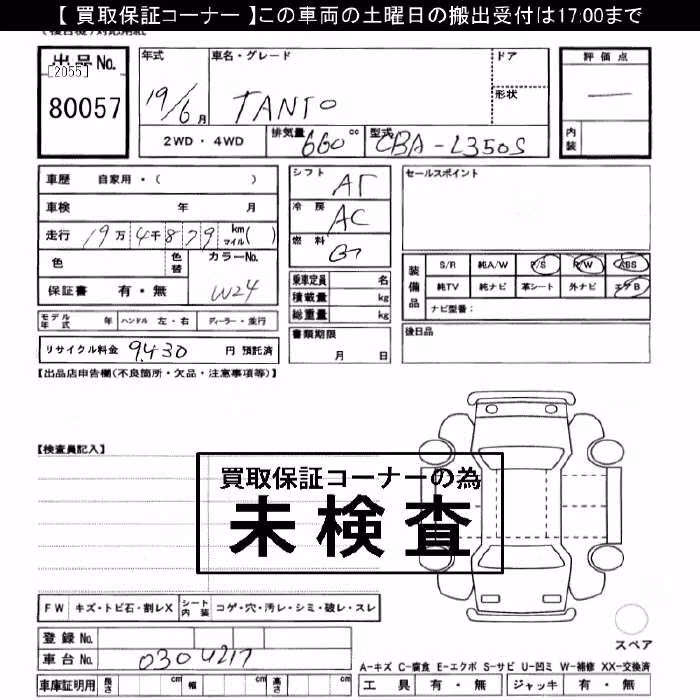 【 買取保証コーナー 】この車両の土曜日の搬出受付は17:00まで
出品No.
[2055]
80057
年式 車名・グレード ドア 形状
19/6月 TANTO
2WD・4WD 排気量 660 cc 型式 CBA-L350S
評価点
—
内装
車歴 自家用・( )
車検 年 月
走行 19万4千879 km マイル( )
色 色替 カラーNo.
保証書 有・無 W24
モデル年式 年 ハンドル 左・右 ディーラー・並行
リサイクル料金 9,430 円 預託済
シフト AT
冷房 AC
燃料 G
乗車定員 名
積載量 kg
総重量 kg
書類期限
月 日
セールスポイント
装備品
S/R 純A/W P/S P/W ABS
純TV 純ナビ 革シート 外ナビ エアB
ナビ型番:
後日品
【出品店申告欄(不良箇所・欠品・注意事項等)】
【検査員記入】
買取保証コーナーの為
未検査
FW キズ・トビ石・割レX シート内装 コゲ・穴・汚レ・シミ・破レ・スレ
登録No.
車台No. 0304217
車庫証明用 長さ cm 幅 cm 高さ cm
スペア
A-キズ C-腐食 E-エクボ S-サビ U-凹ミ W-補修 XX-交換済
工具 有・無 ジャッキ 有・無